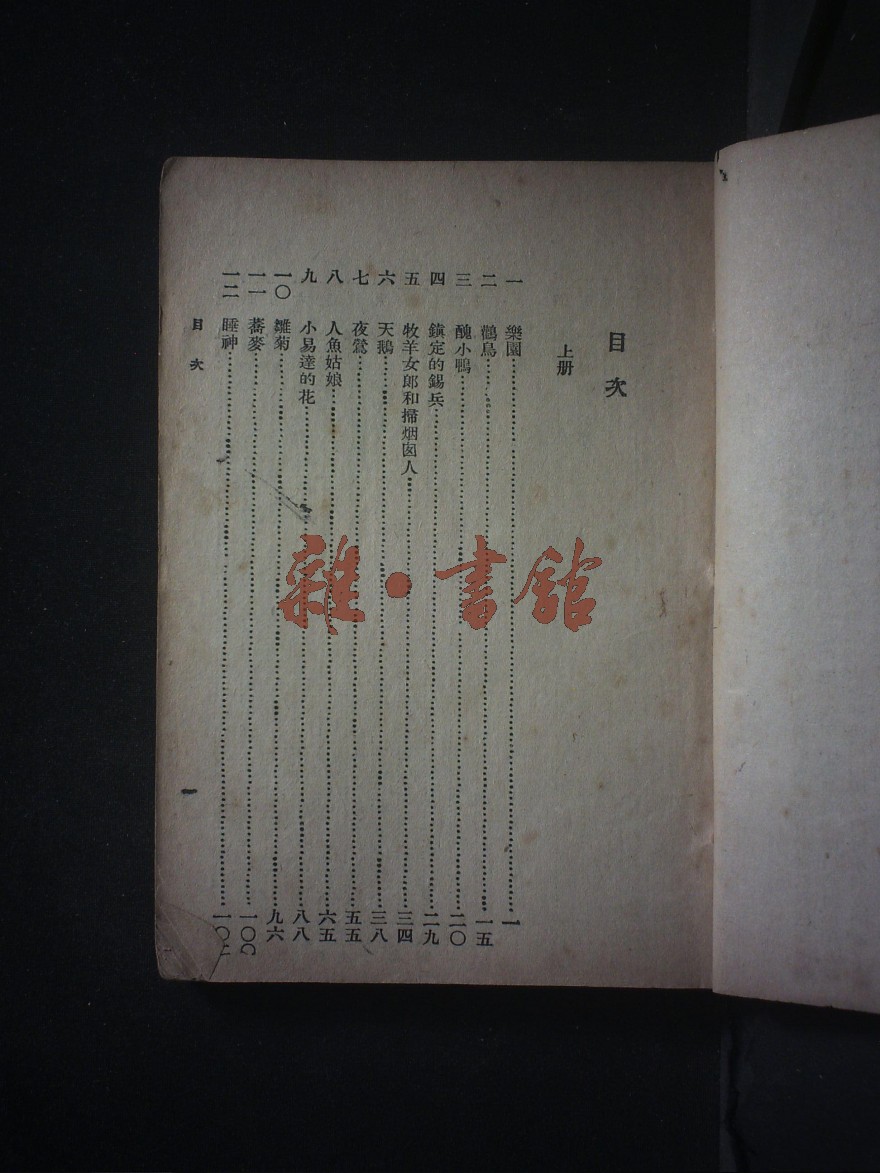 目次
上册
一 樂園 一
二 鸛鳥 一五
三 醜小鴨 二〇
四 鎭定的錫兵 二九
五 牧羊女郎和掃烟囱人 三四
六 天鵝 三八
七 夜鶯 五五
八 人魚姑娘 六五
九 小易達的花 八八
一〇 雛菊 九六
一一 蕎麥 一〇〇
一二 睡神 一〇
目次
一
雜·書館